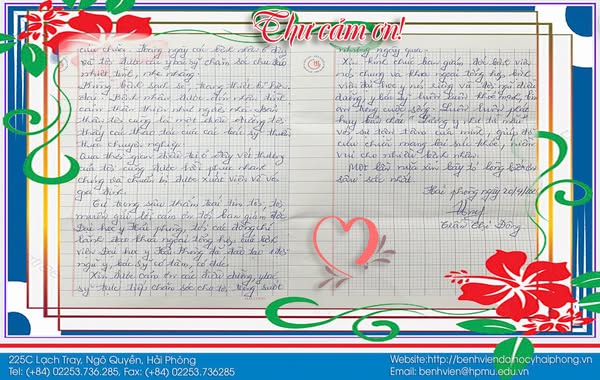 Thư cảm ơn!
cứu chữa. Trong ngày các bệnh nhân ở đây
và tôi được các y bác sỹ chăm sóc chu đáo
nhiệt tình, nhẹ nhàng.
Phòng bệnh sạch sẽ, trang thiết bị hiện
đại. Bệnh nhân được nằm nhà
cảm thấy thân như người nhà.
thân tôi cũng là một điều dưỡng tôi
thấy các thao tác của các bác sỹ
thực chuyên nghiệp.
Qua thời gian điều trị ở đây vết thương
của tôi cũng được hồi phục nhanh
chóng và chuẩn bị được xuất viện về với
gia đình.
Tự trong sâu thẳm trái tim tôi, tôi
muốn gửi lời cảm ơn tới ban giám đốc
Đại học y Hải phòng, tới các đồng chí
lãnh đạo khoa ngoại tổng hợp của bệnh
viện Đại học y Hải Phòng đã đào tạo
ngũ y, bác sỹ có tâm, có đức.
Xin được cảm ơn các điều dưỡng, y bác
sỹ trực tiếp chăm sóc cho tôi trong suốt
những ngày qua.
Xin kính chúc ban giám đốc bệnh viện
nói chung và khoa ngoại tổng hợp bệnh
viện đại học y nói riêng và đội ngũ điều
dưỡng, y bác sỹ luôn luôn khoẻ mạnh,
ấm trong cuộc sống. Luôn luôn phát
huy bản chất "Lương y như từ mẫu"
với sự tận tâm của mình, giúp đỡ
cứu chữa mang lại sức khỏe, niềm
vui cho nhiều bệnh nhân.
Một lần nữa xin bày tỏ lòng biết ơn
sâu sắc nhất.
Hải phòng ngày 20/4/
Trần Thị Đông
225C Lạch Tray, Ngô Quyền, Hải Phòng
Tel: (+84) 02253.736.285, Fax: (+84) 02253.736285
Website:http://benhviendaihocyhaiphong.vn
Email: benhvien@hpmu.edu.vn